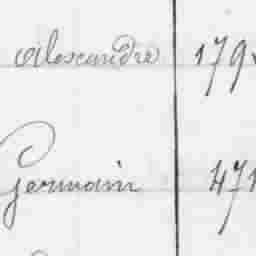 Alexandre 179
Germain 471